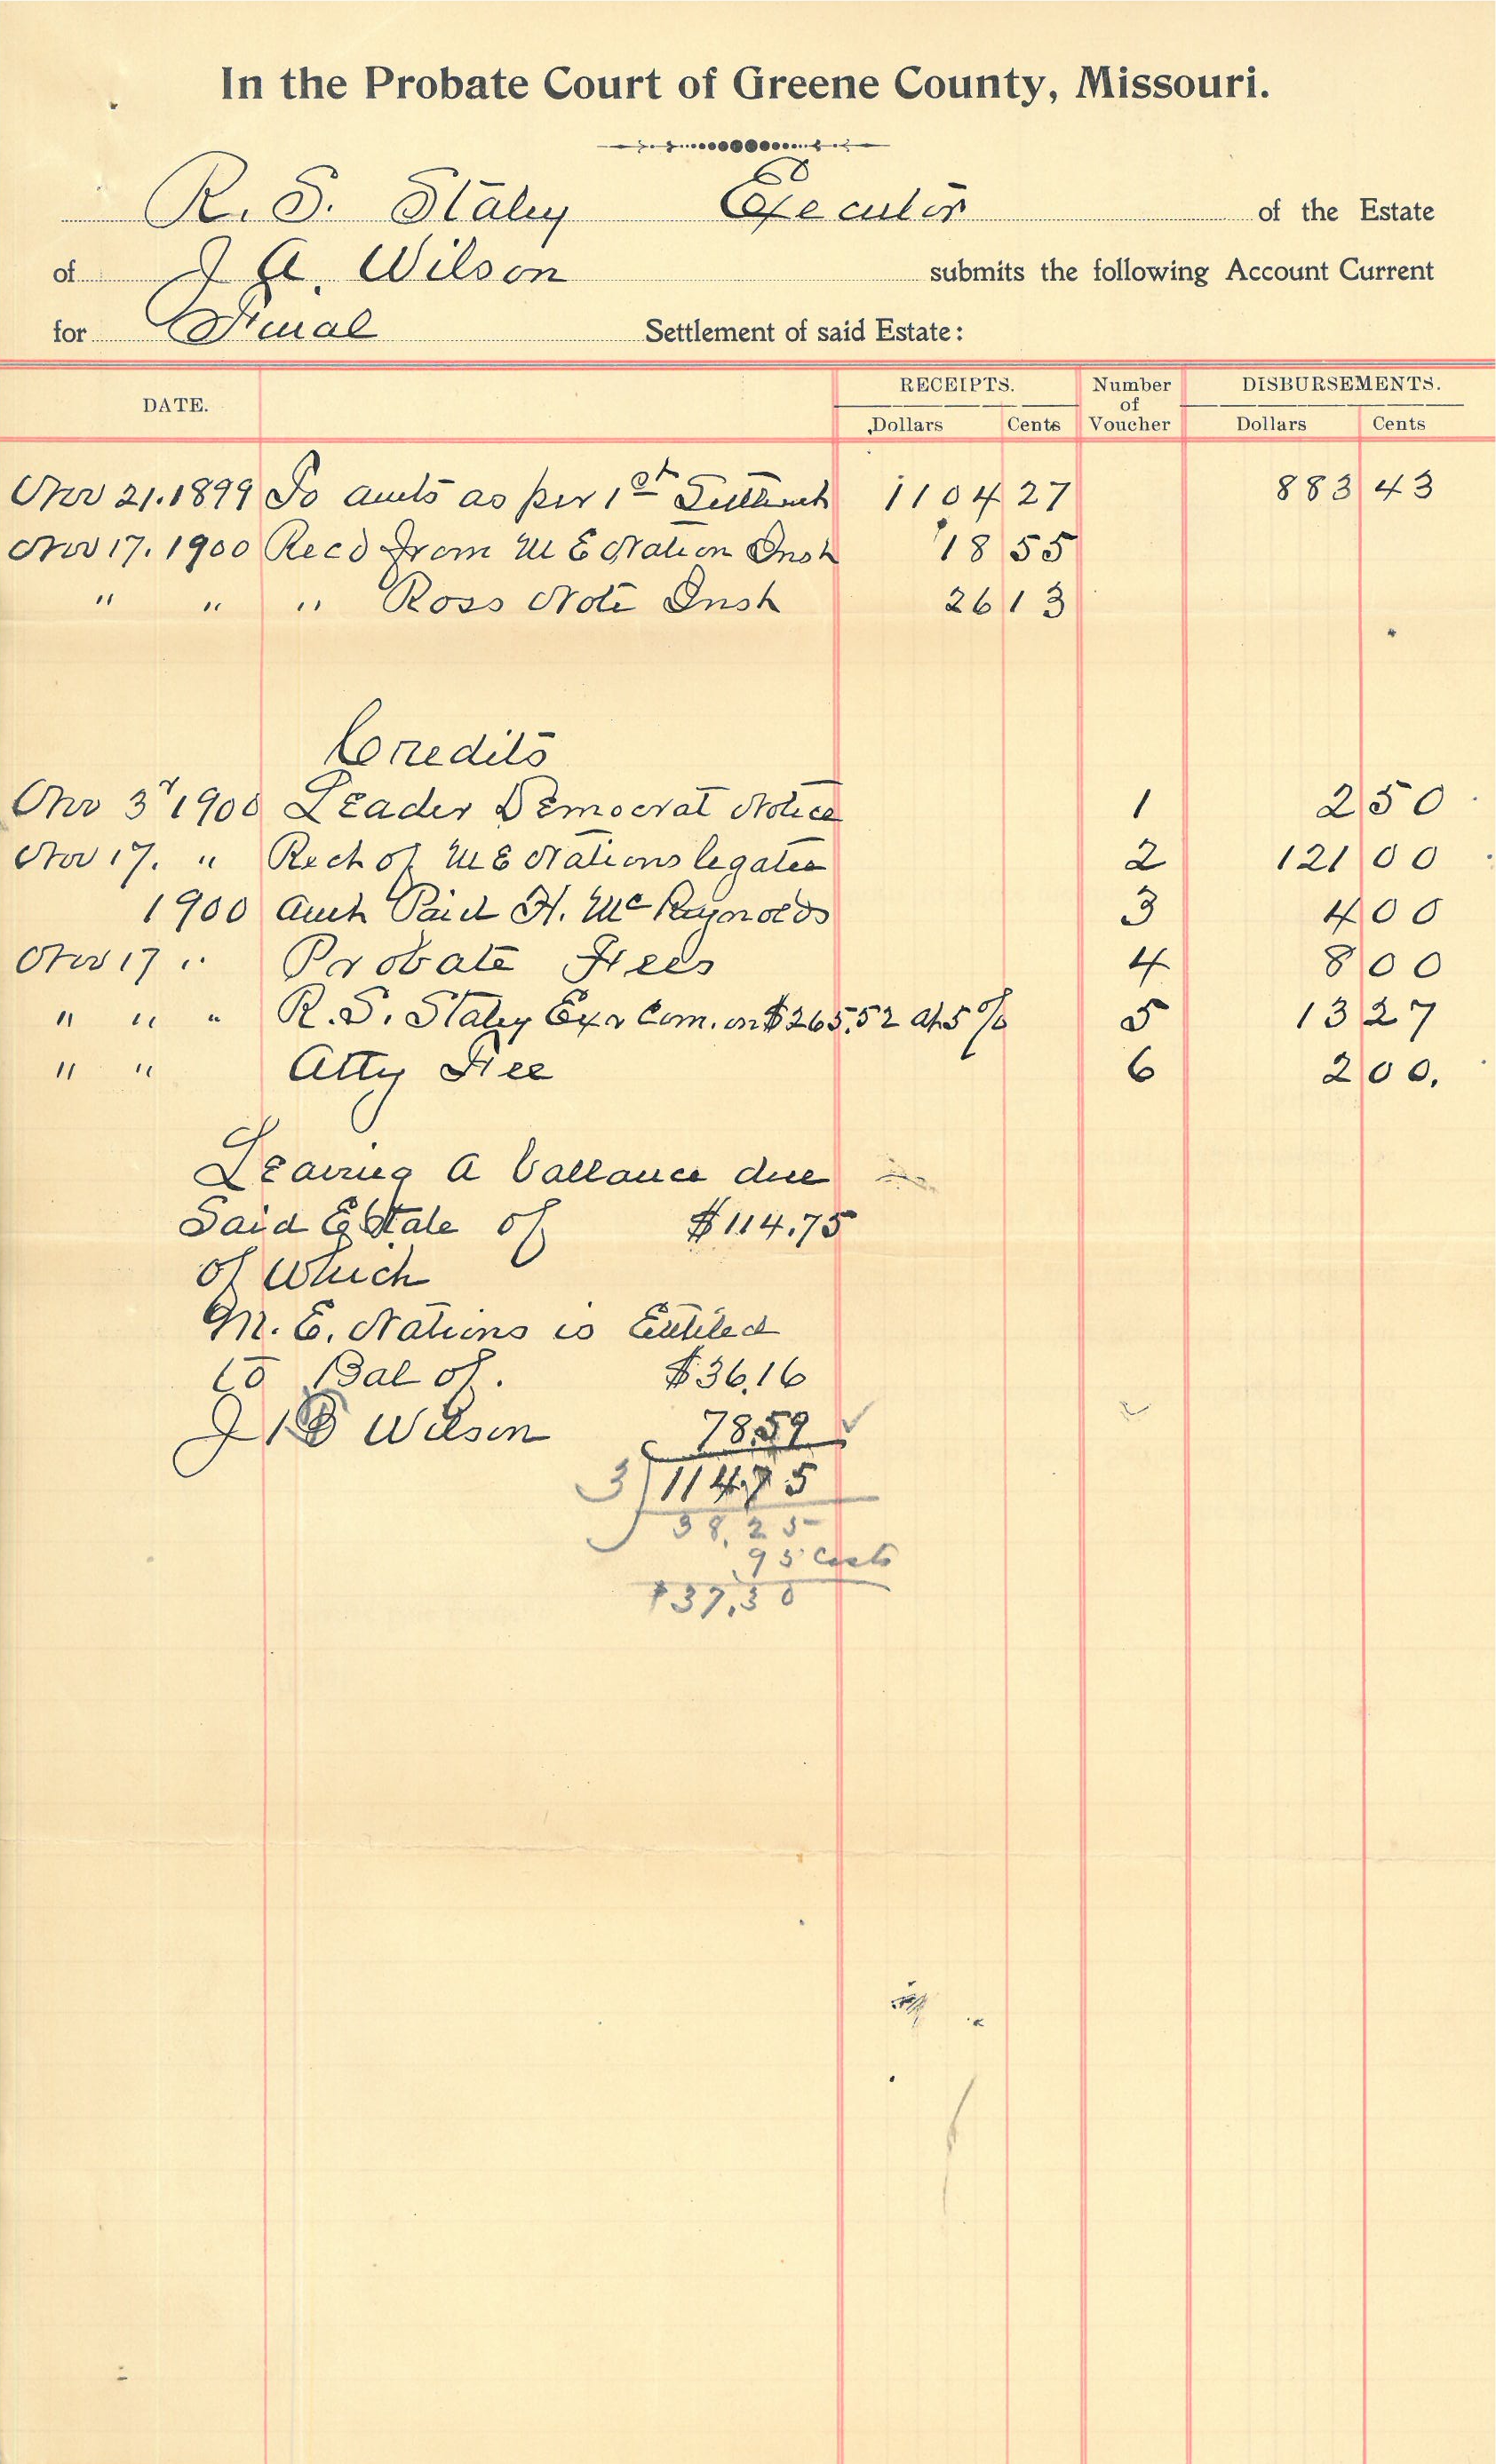 In the Probate Court of Greene County, Missouri.
R. S. Staley Executor of the Estate
of J A. Wilson submits the following Account Current
for Final Settlement of said Estate:
DATE. RECEIPTS. Number of Voucher DISBURSEMENTS.
Dollars Cents Dollars Cents
Nov 21. 1899 To amts as per 1st Settlment 1104 27 883 43
Nov 17. 1900 Recd from M E Nation Inst 18 55
" " " Ross Note Inst 26 13
Credits
Nov 3d 1900 Leader Democrat Notice 1 2 50
Nov 17. " Rect of M E Nations legatee 2 121 00
1900 Amt Paid H. McReynolds 3 4 00
Nov 17 " Probate Fees 4 8 00
" " " R. S. Staley Exr Com. on $265.52 at 5% 5 13 27
" " Atty Fee 6 2 00.
Leaving A ballance due
Said Estate of $114.75
of Which
M. E. Nations is Entiled
to Bal of. $36.16
Wilson 78.59
3) 114.75
38.25
.95 Costs
$37.30